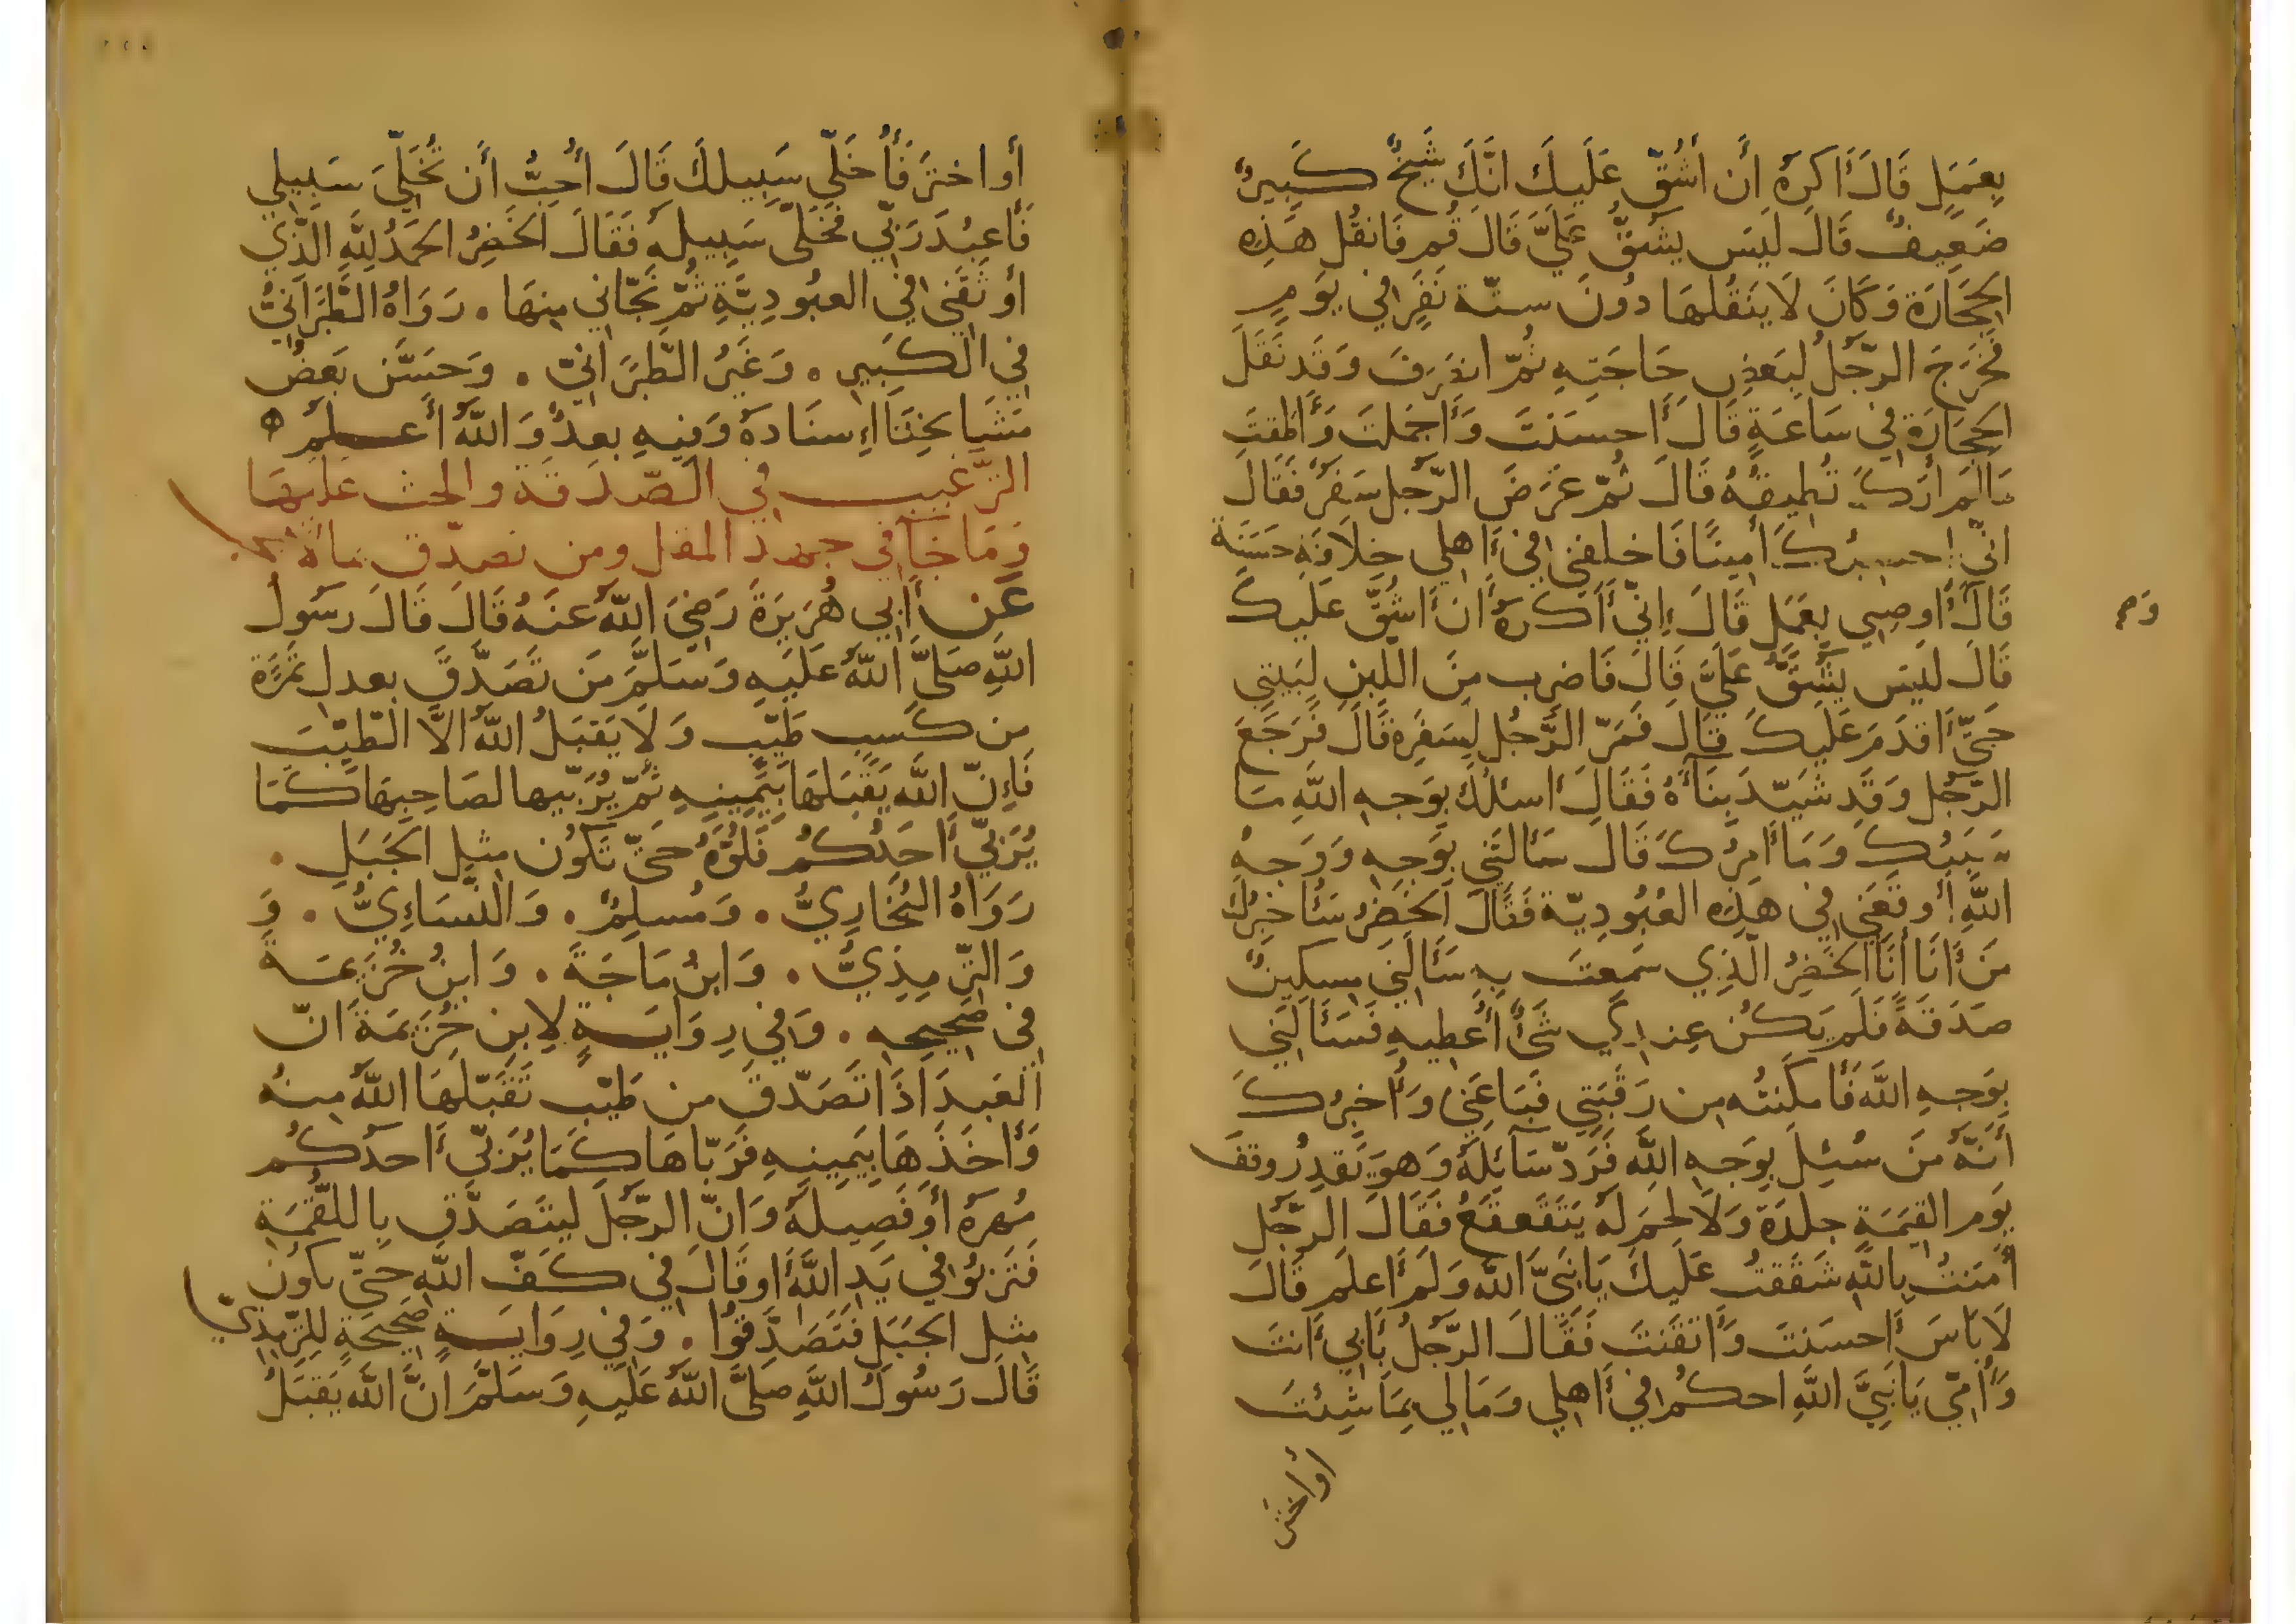 بِعَمَلٍ قَالَ أَكرَهُ أَن أَشُقَّ عَلَيكَ انَّكَ شَيخٌ كَبِيرٌ
ضَعِيفٌ قَالَ لَيسَ يَشُقُّ عَلَيَّ قَالَ قُم فَانقُل هَذِهِ
الحِجَارَةَ وَكَانَ لَا يَنقُلهَا دُونَ ستّة نَفَرٍ في يَومٍ
فَخَرَجَ الرَّجُلُ لِبَعضِ حَاجَتِهِ ثُمّ انصَرَفَ وَقَد نَقَلَ
الحِجَارَةَ في سَاعَةٍ قَالَ أَحسَنتَ وَأَجمَلتَ وَأَطَقتَ
مَالَم أَرَكَ تُطِيقُهُ قَالَ ثُمّ عَرَضَ الرّجلَ سَفَرٌ فَقَالَ
انّي احسبُكَ أَمِينًا فَاخلفني في أَهلي خِلَافَةِ حَسَنَة
قَالَ أَوصِني بِعَمَلٍ قَالَ إِنّي أَكرَهُ أَن أَشُقَّ عَلَيكَ
قَالَ لَيسَ يَشُقُّ عَلَيَّ قَالَ فَاضرِب مِنَ اللَّبِنِ لِبَيتِي
حَتّى أَقدَمَ عَلَيكَ قَالَ فَمَرّ الرّجُلُ لِسَفَرِهِ قَالَ فَرَجَعَ
الرّجُل وَقَد شَيّدَ بِنَاءَهُ فَقَالَ أَسئلُكَ بِوَجهِ اللَّهِ مَا
سَبَبُكَ وَمَا أَمرُكَ قَالَ سَأَلتَنِي بِوَجهِ وَوَجهُ
اللَّهِ أَوقَعَنِي في هَذِهِ العُبُودِيّة فَقَالَ الخَضِرُ سَأُخبِرُكَ
مَن أَنَا أَنَا الخَضِرُ الّذِي سَمِعتَ بِهِ سَأَلَنِي مِسكِينٌ
صَدَقَةً فَلَم يَكُن عِندِي شَيءٌ أُعطِيهِ فَسَأَلَنِي
بِوَجهِ اللَّه فَأَمكَنتُه مِن رَقَبَتِي فَبَاعَنِي وَأُخبِرُكَ
أَنَّهُ مَن سُئِلَ بِوَجهِ اللَّهِ فَرَدّ سَآئِلَهُ وَهوَ يَقدِرُ وقفَ
يَومَ القِيَمَةِ جِلدَة وَلَا لَحمَ لَهُ يَتَقَعقَعُ فَقَالَ الرَّجُل
أَمَنتُ بِاللَّهِ شَقَقتُ عَلَيكَ يَا نَبِيَّ اللَّه وَلَم أَعلَم قَالَ
لَا بَأسَ أَحسَنتَ وَأَتقَنتَ فَقَالَ الرّجُلُ بِأَبِي أَنتَ
وَأُمّي يَا نَبِيَّ اللَّهِ احكُم في أَهلِي وَمَالِي بِمَا شِئتَ
أو اختر
أَو اختَر فَأُخَلّي سَبِيلَكَ قَالَ أُحِبُّ أَن تُخَلِّيَ سَبِيلِي
فَأَعبُدَ رَبّي فَخَلَّى سَبِيلَهُ فَقَالَ الخَضِرُ الحَمدُ لِلَّهِ الَّذِي
أَوثَقَني في العُبُودِيَّةِ ثُمّ نَجّاني مِنهَا . رَوَاهُ الطَّبَرَانيُّ
في الكَبِيرِ . وَغَيرُ الطّبَرَانيّ . وَحَسَّنَ بَعضُ
مَشَايخِنَا إِسنَادَهُ وَفِيهِ بعدٌ وَاللَّهُ أَعلَمُ
التّرغيب في الصّدقة والحث عليها
وَمَا جَآ في جهد المقل ومن تصدّق بما لا يجب
عَن أَبي هُرَيرَةَ رَضِيَ اللَّهُ عَنهُ قَالَ قَالَ رَسُولُ
اللَّهِ صَلَّى اللَّهُ عَلَيهِ وَسَلَّمَ مَن تَصَدَّقَ بعدلِ تَمرَةٍ
مِن كَسبٍ طَيّبٍ وَلَا يَقبَلُ اللَّهُ الَّا الطّيِّبَ
فَإِنّ اللَّهَ يَقبَلهَا بِيَمِينِهِ ثُمّ يُرَبّيها لصَاحِبِهَا كَمَا
يُرَبّي أَحَدُكُم فَلُوَّهُ حَتّى تَكُونَ مِثلَ الجَبَلِ .
رَوَاهُ البُخَارِيُّ . وَمُسلِمٌ . وَالنَّسَاءِيُّ . وَ
وَالتِّرمِذِيُّ . وَابنُ مَاجَةَ . وَابنُ خُزَيمَةَ
في صَحِيحِهِ . وَفي رِوَايَةٍ لِابنِ خُزَيمَةَ انّ
العَبدَ اذَا تَصَدّقَ من طَيّبٍ تَقَبّلَهَا اللَّهُ مِنهُ
وَأَخَذَهَا بِيَمِينِهِ فَرَبّاهَا كَمَا يُرَبّي أَحَدُكُم
مُهرَهُ أَو فَصِيلَهُ وَانّ الرّجُلَ لَيَتَصَدّقُ بِاللُّقمَةِ
فَتَربُوا في يَدِ اللَّهِ أَو قَالَ في كَفّ اللَّهِ حَتّى تكونَ
مِثلَ الجَبَلِ فَتَصَدَّقُوا . وَفي رِوَايَةٍ صَحِيحَةٍ لِلتِّرمِذِيّ
قَالَ رَسُولُ اللَّهِ صَلَّى اللَّهُ عَلَيهِ وَسَلَّمَ انَّ اللَّهَ يَقبَلُ